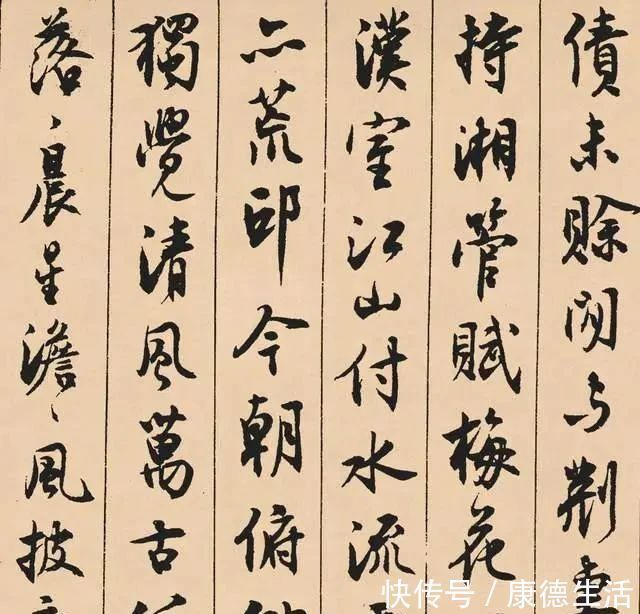 債未賒閒與荊
持湘管賦梅花
漢室江山付水流
亦荒邱今朝俯
獨覺清風萬古
落〻晨星澹〻風披
快传号／康德生活